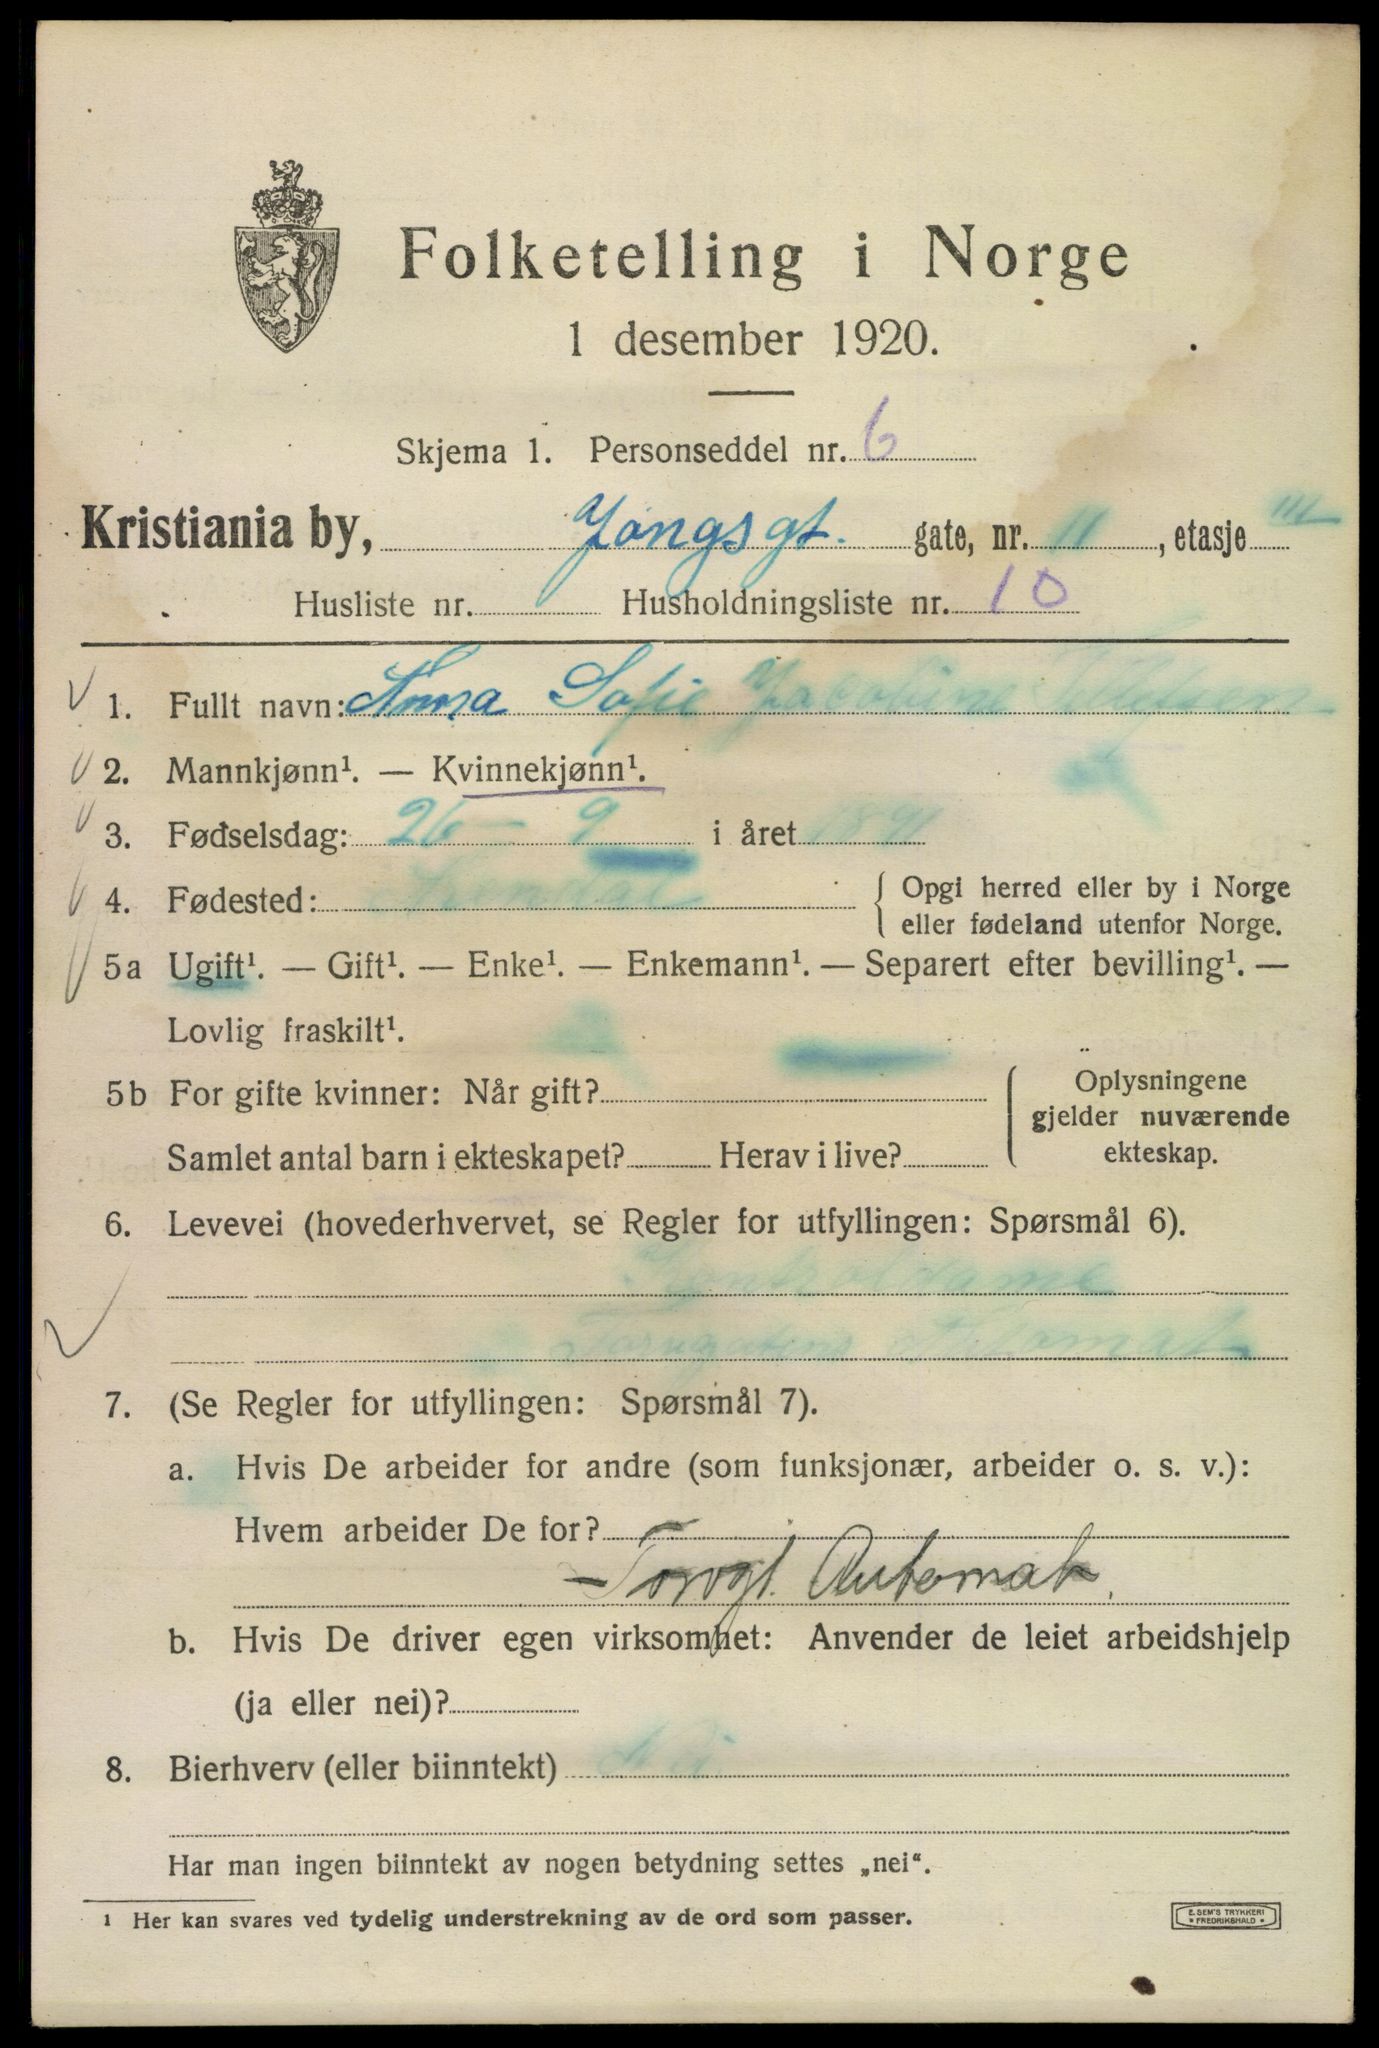 Folketelling i Norge
1 desember 1920.
Skjema 1. Personseddel nr. 6
Kristiania by, Yongsgt. gate, nr. 11, etasje III
Husliste nr. Husholdningsliste nr. 10
1. Fullt navn: Anna Sofie Jacobine
2. Mannkjønn¹. — Kvinnekjønn¹.
3. Fødselsdag: 26 – 9 i året 1891
4. Fødested: { Opgi herred eller by i Norge
eller fødeland utenfor Norge.
5a Ugift¹. — Gift¹. — Enke¹. — Enkemann¹. — Separert efter bevilling¹. —
Lovlig fraskilt¹.
5b For gifte kvinner: Når gift? { Oplysningene
gjelder nuværende
Samlet antal barn i ekteskapet? Herav i live? ekteskap.
6. Levevei (hovederhvervet, se Regler for utfyllingen: Spørsmål 6).
Kontroldame
Torvgatens Automat
7. (Se Regler for utfyllingen: Spørsmål 7).
a. Hvis De arbeider for andre (som funksjonær, arbeider o. s. v.):
Hvem arbeider De for?
Torvgt. Automat.
b. Hvis De driver egen virksomhet: Anvender de leiet arbeidshjelp
(ja eller nei)?
8. Bierhverv (eller biinntekt) Nei
Har man ingen biinntekt av nogen betydning settes „nei“.
1 Her kan svares ved tydelig understrekning av de ord som passer.
E. SEM'S TRYKKERI
• FREDRIKSHALD •